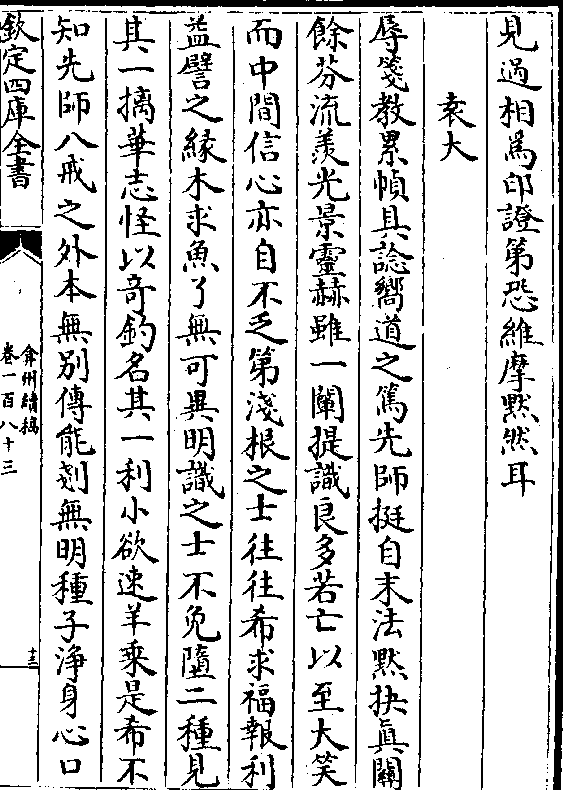 見過相為印證第恐維摩黙然耳
袁大
辱箋教累幀具諗嚮道之篤先師挺自末法黙抉真闗
餘芬流羨光景靈赫雖一闡提識良多若亡以至大笑
而中間信心亦自不乏第淺根之士徃徃希求福報利
益譬之縁木求魚了無可異明識之士不免墮二種見
其一摛華志怪以竒釣名其一利小欲速羊乘是希不
知先師八戒之外本無別傳能剗無明種子淨身心口
欽定四庫全書
弇州續稿
卷一百八十三
十三